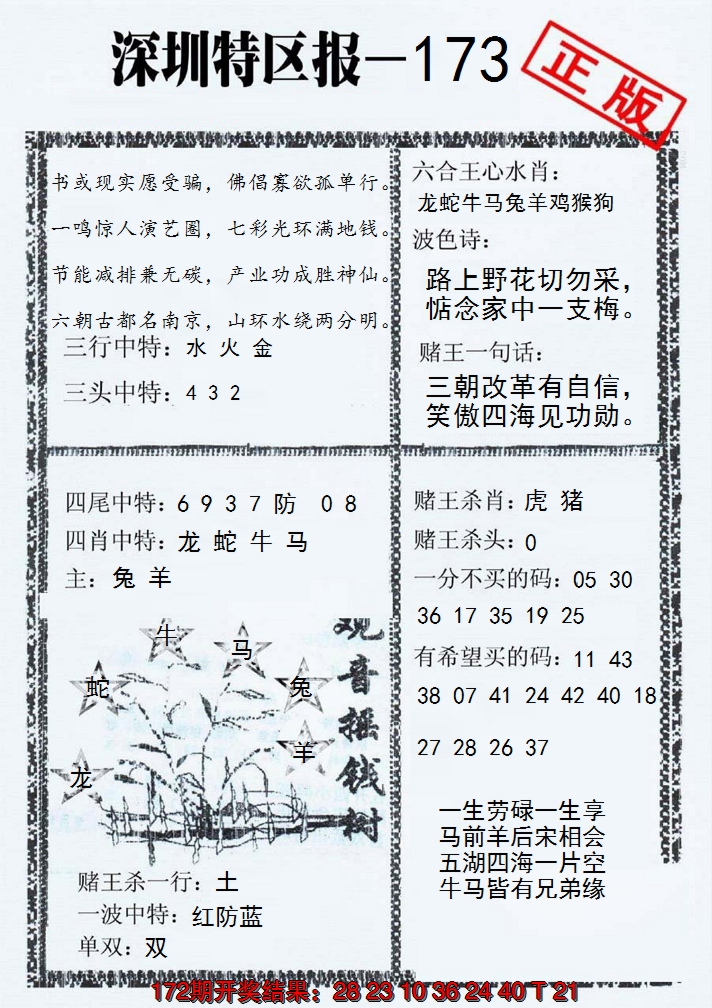 深圳特区报－173
正版
书或现实愿受骗，佛倡寡欲孤单行。
一鸣惊人演艺圈，七彩光环满地钱。
节能减排兼无碳，产业功成胜神仙。
六朝古都名南京，山环水绕两分明。
三行中特：水 火 金
三头中特：4 3 2
六合王心水肖：
龙蛇牛马兔羊鸡猴狗
波色诗：
路上野花切勿采，
惦念家中一支梅。
赌王一句话：
三朝改革有自信，
笑傲四海见功勋。
四尾中特：6 9 3 7 防 0 8
四肖中特：龙 蛇 牛 马
主：兔 羊
牛
马
蛇
兔
羊
龙
观音摇钱树
赌王杀一行：土
一波中特：红防蓝
单双：双
赌王杀肖：虎 猪
赌王杀头：0
一分不买的码：05 30
36 17 35 19 25
有希望买的码：11 43
38 07 41 24 42 40 18
27 28 26 37
一生劳碌一生享
马前羊后宋相会
五湖四海一片空
牛马皆有兄弟缘
172期开奖结果：28 23 10 36 24 40 T 21